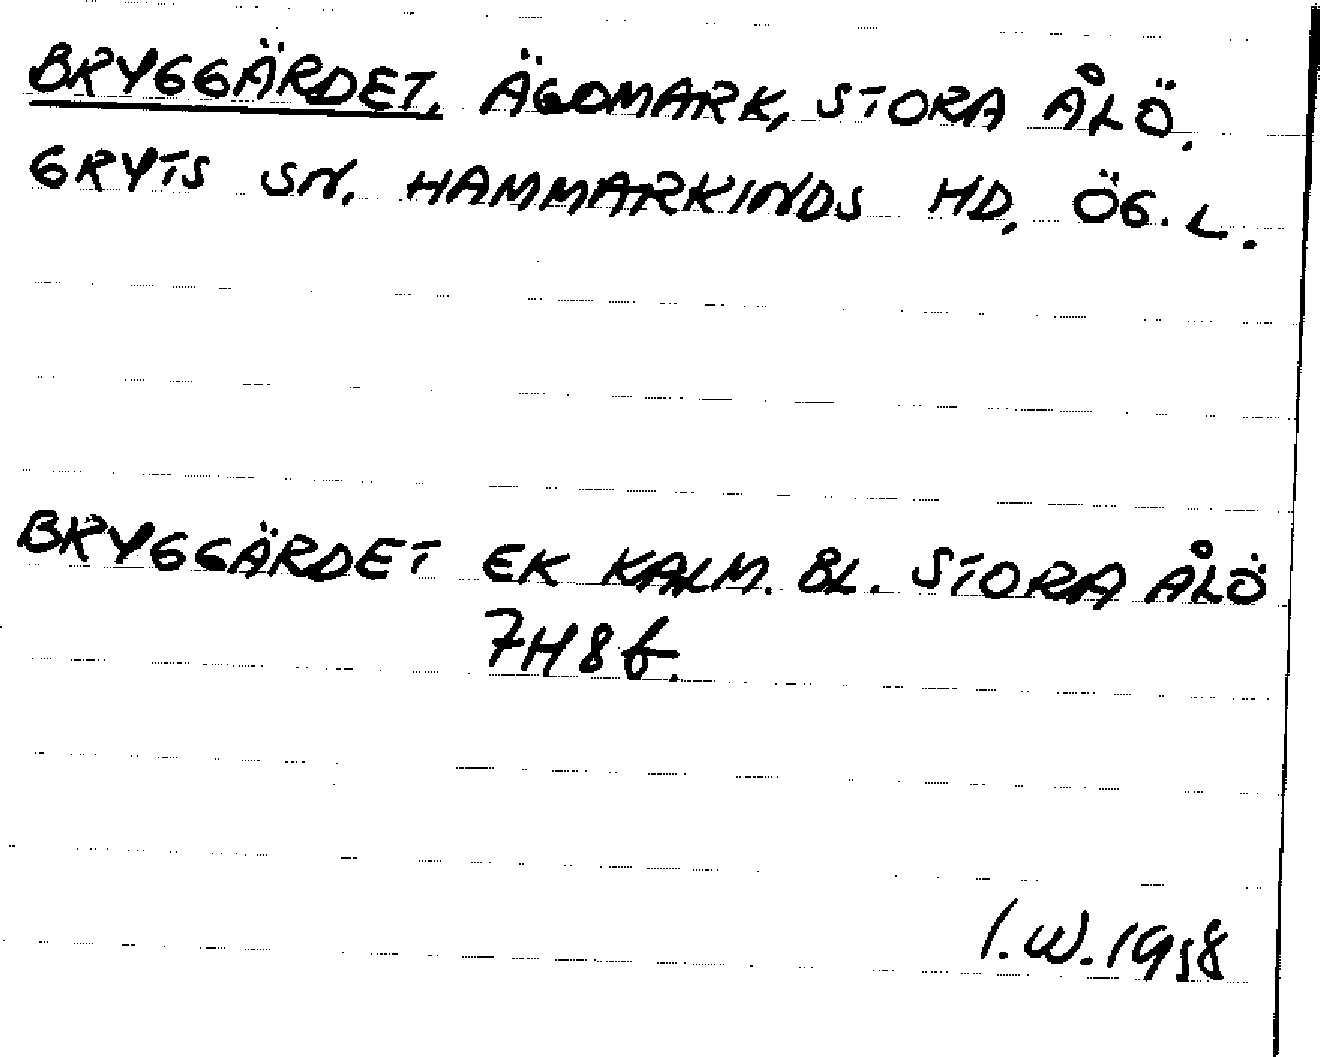 BRYGGÄRDET, ÄGOMARK, STORA ÅLÖ.
GRYTS SN. HAMMARKINDS HD, ÖG. L.
BRYGGÄRDET EK KALM. BL. STORA ÅLÖ
7H8f.
I.W. 1958